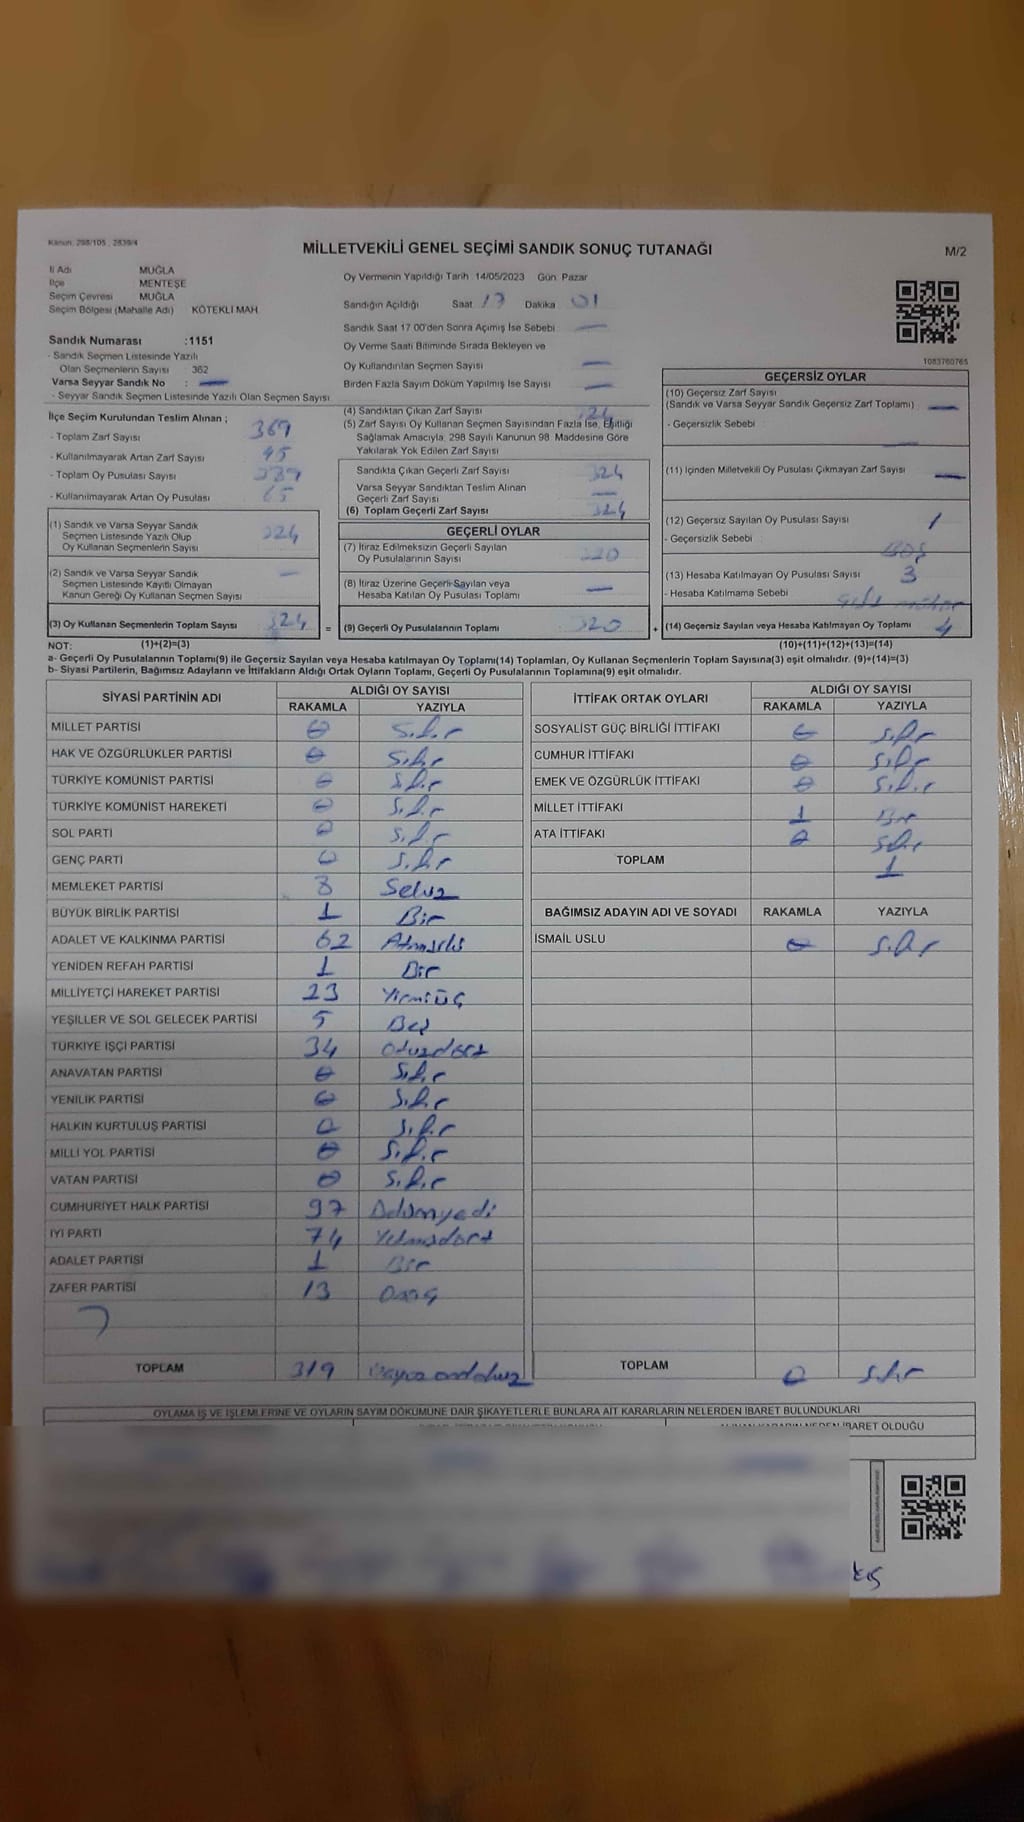 Kanun: 298/105 , 2839/4
MİLLETVEKİLİ GENEL SEÇİMİ SANDIK SONUÇ TUTANAĞI
M/2
İl Adı MUĞLA
İlçe MENTEŞE
Seçim Çevresi MUĞLA
Seçim Bölgesi (Mahalle Adı) KÖTEKLİ MAH.
Oy Vermenin Yapıldığı Tarih 14/05/2023 Gün Pazar
Sandığın Açıldığı Saat 17 Dakika 01
Sandık Saat 17 00'den Sonra Açımış İse Sebebi —
Oy Verme Saati Bitiminde Sırada Bekleyen ve
Oy Kullandırılan Seçmen Sayısı —
Birden Fazla Sayım Döküm Yapılmış İse Sayısı —
1083760765
Sandık Numarası :1151
- Sandık Seçmen Listesinde Yazılı
Olan Seçmenlerin Sayısı : 362
Varsa Seyyar Sandık No : —
- Seyyar Sandık Seçmen Listesinde Yazılı Olan Seçmen Sayısı
İlçe Seçim Kurulundan Teslim Alınan ;
- Toplam Zarf Sayısı 369
- Kullanılmayarak Artan Zarf Sayısı 45
- Toplam Oy Pusulası Sayısı
- Kullanılmayarak Artan Oy Pusulası
(1) Sandık ve Varsa Seyyar Sandık
Seçmen Listesinde Yazılı Olup
Oy Kullanan Seçmenlerin Sayısı 324
(2) Sandık ve Varsa Seyyar Sandık
Seçmen Listesinde Kayıtlı Olmayan
Kanun Gereği Oy Kullanan Seçmen Sayısı —
(3) Oy Kullanan Seçmenlerin Toplam Sayısı 324
(4) Sandıktan Çıkan Zarf Sayısı 324
(5) Zarf Sayısı Oy Kullanan Seçmen Sayısından Fazla İse, Eşitliği
Sağlamak Amacıyla, 298 Sayılı Kanunun 98. Maddesine Göre
Yakılarak Yok Edilen Zarf Sayısı
Sandıkta Çıkan Geçerli Zarf Sayısı 324
Varsa Seyyar Sandıktan Teslim Alınan
Geçerli Zarf Sayısı —
(6) Toplam Geçerli Zarf Sayısı 324
GEÇERLİ OYLAR
(7) İtiraz Edilmeksizin Geçerli Sayılan
Oy Pusulalarının Sayısı 320
(8) İtiraz Üzerine Geçerli Sayılan veya
Hesaba Katılan Oy Pusulası Toplamı —
= (9) Geçerli Oy Pusulalarının Toplamı 320 +
GEÇERSİZ OYLAR
(10) Geçersiz Zarf Sayısı
(Sandık ve Varsa Seyyar Sandık Geçersiz Zarf Toplamı) —
- Geçersizlik Sebebi —
(11) İçinden Milletvekili Oy Pusulası Çıkmayan Zarf Sayısı —
(12) Geçersiz Sayılan Oy Pusulası Sayısı 1
- Geçersizlik Sebebi BOŞ
(13) Hesaba Katılmayan Oy Pusulası Sayısı 3
- Hesaba Katılmama Sebebi
(14) Geçersiz Sayılan veya Hesaba Katılmayan Oy Toplamı 4
NOT: (1)+(2)=(3) (10)+(11)+(12)+(13)=(14)
a- Geçerli Oy Pusulalarının Toplamı(9) ile Geçersiz Sayılan veya Hesaba katılmayan Oy Toplamı(14) Toplamları, Oy Kullanan Seçmenlerin Toplam Sayısına(3) eşit olmalıdır. (9)+(14)=(3)
b- Siyasi Partilerin, Bağımsız Adayların ve İttifakların Aldığı Ortak Oyların Toplamı, Geçerli Oy Pusulalarının Toplamına(9) eşit olmalıdır.
SİYASİ PARTİNİN ADI ALDIĞI OY SAYISI
RAKAMLA YAZIYLA
MİLLET PARTİSİ 0 Sıfır
HAK VE ÖZGÜRLÜKLER PARTİSİ 0 Sıfır
TÜRKİYE KOMÜNİST PARTİSİ 0 Sıfır
TÜRKİYE KOMÜNİST HAREKETİ 0 Sıfır
SOL PARTİ 0 Sıfır
GENÇ PARTİ 0 Sıfır
MEMLEKET PARTİSİ 8 Sekiz
BÜYÜK BİRLİK PARTİSİ 1 Bir
ADALET VE KALKINMA PARTİSİ 62 Altmışiki
YENİDEN REFAH PARTİSİ 1 Bir
MİLLİYETÇİ HAREKET PARTİSİ 23 Yirmiüç
YEŞİLLER VE SOL GELECEK PARTİSİ 5 Beş
TÜRKİYE İŞÇİ PARTİSİ 34 Otuzdört
ANAVATAN PARTİSİ 0 Sıfır
YENİLİK PARTİSİ 0 Sıfır
HALKIN KURTULUŞ PARTİSİ 0 Sıfır
MİLLİ YOL PARTİSİ 0 Sıfır
VATAN PARTİSİ 0 Sıfır
CUMHURİYET HALK PARTİSİ 97 Doksanyedi
İYİ PARTİ 74 Yetmişdört
ADALET PARTİSİ 1 Bir
ZAFER PARTİSİ 13 Onüç
TOPLAM 319 Üçyüzondokuz
İTTİFAK ORTAK OYLARI ALDIĞI OY SAYISI
RAKAMLA YAZIYLA
SOSYALİST GÜÇ BİRLİĞİ İTTİFAKI 0 Sıfır
CUMHUR İTTİFAKI 0 Sıfır
EMEK VE ÖZGÜRLÜK İTTİFAKI 0 Sıfır
MİLLET İTTİFAKI 1 Bir
ATA İTTİFAKI 0 Sıfır
TOPLAM 1
BAĞIMSIZ ADAYIN ADI VE SOYADI RAKAMLA YAZIYLA
İSMAİL USLU 0 Sıfır
TOPLAM 0 Sıfır
OYLAMA İŞ VE İŞLEMLERİNE VE OYLARIN SAYIM DÖKÜMÜNE DAİR ŞİKAYETLERLE BUNLARA AİT KARARLARIN NELERDEN İBARET BULUNDUKLARI
İBARET OLDUĞU